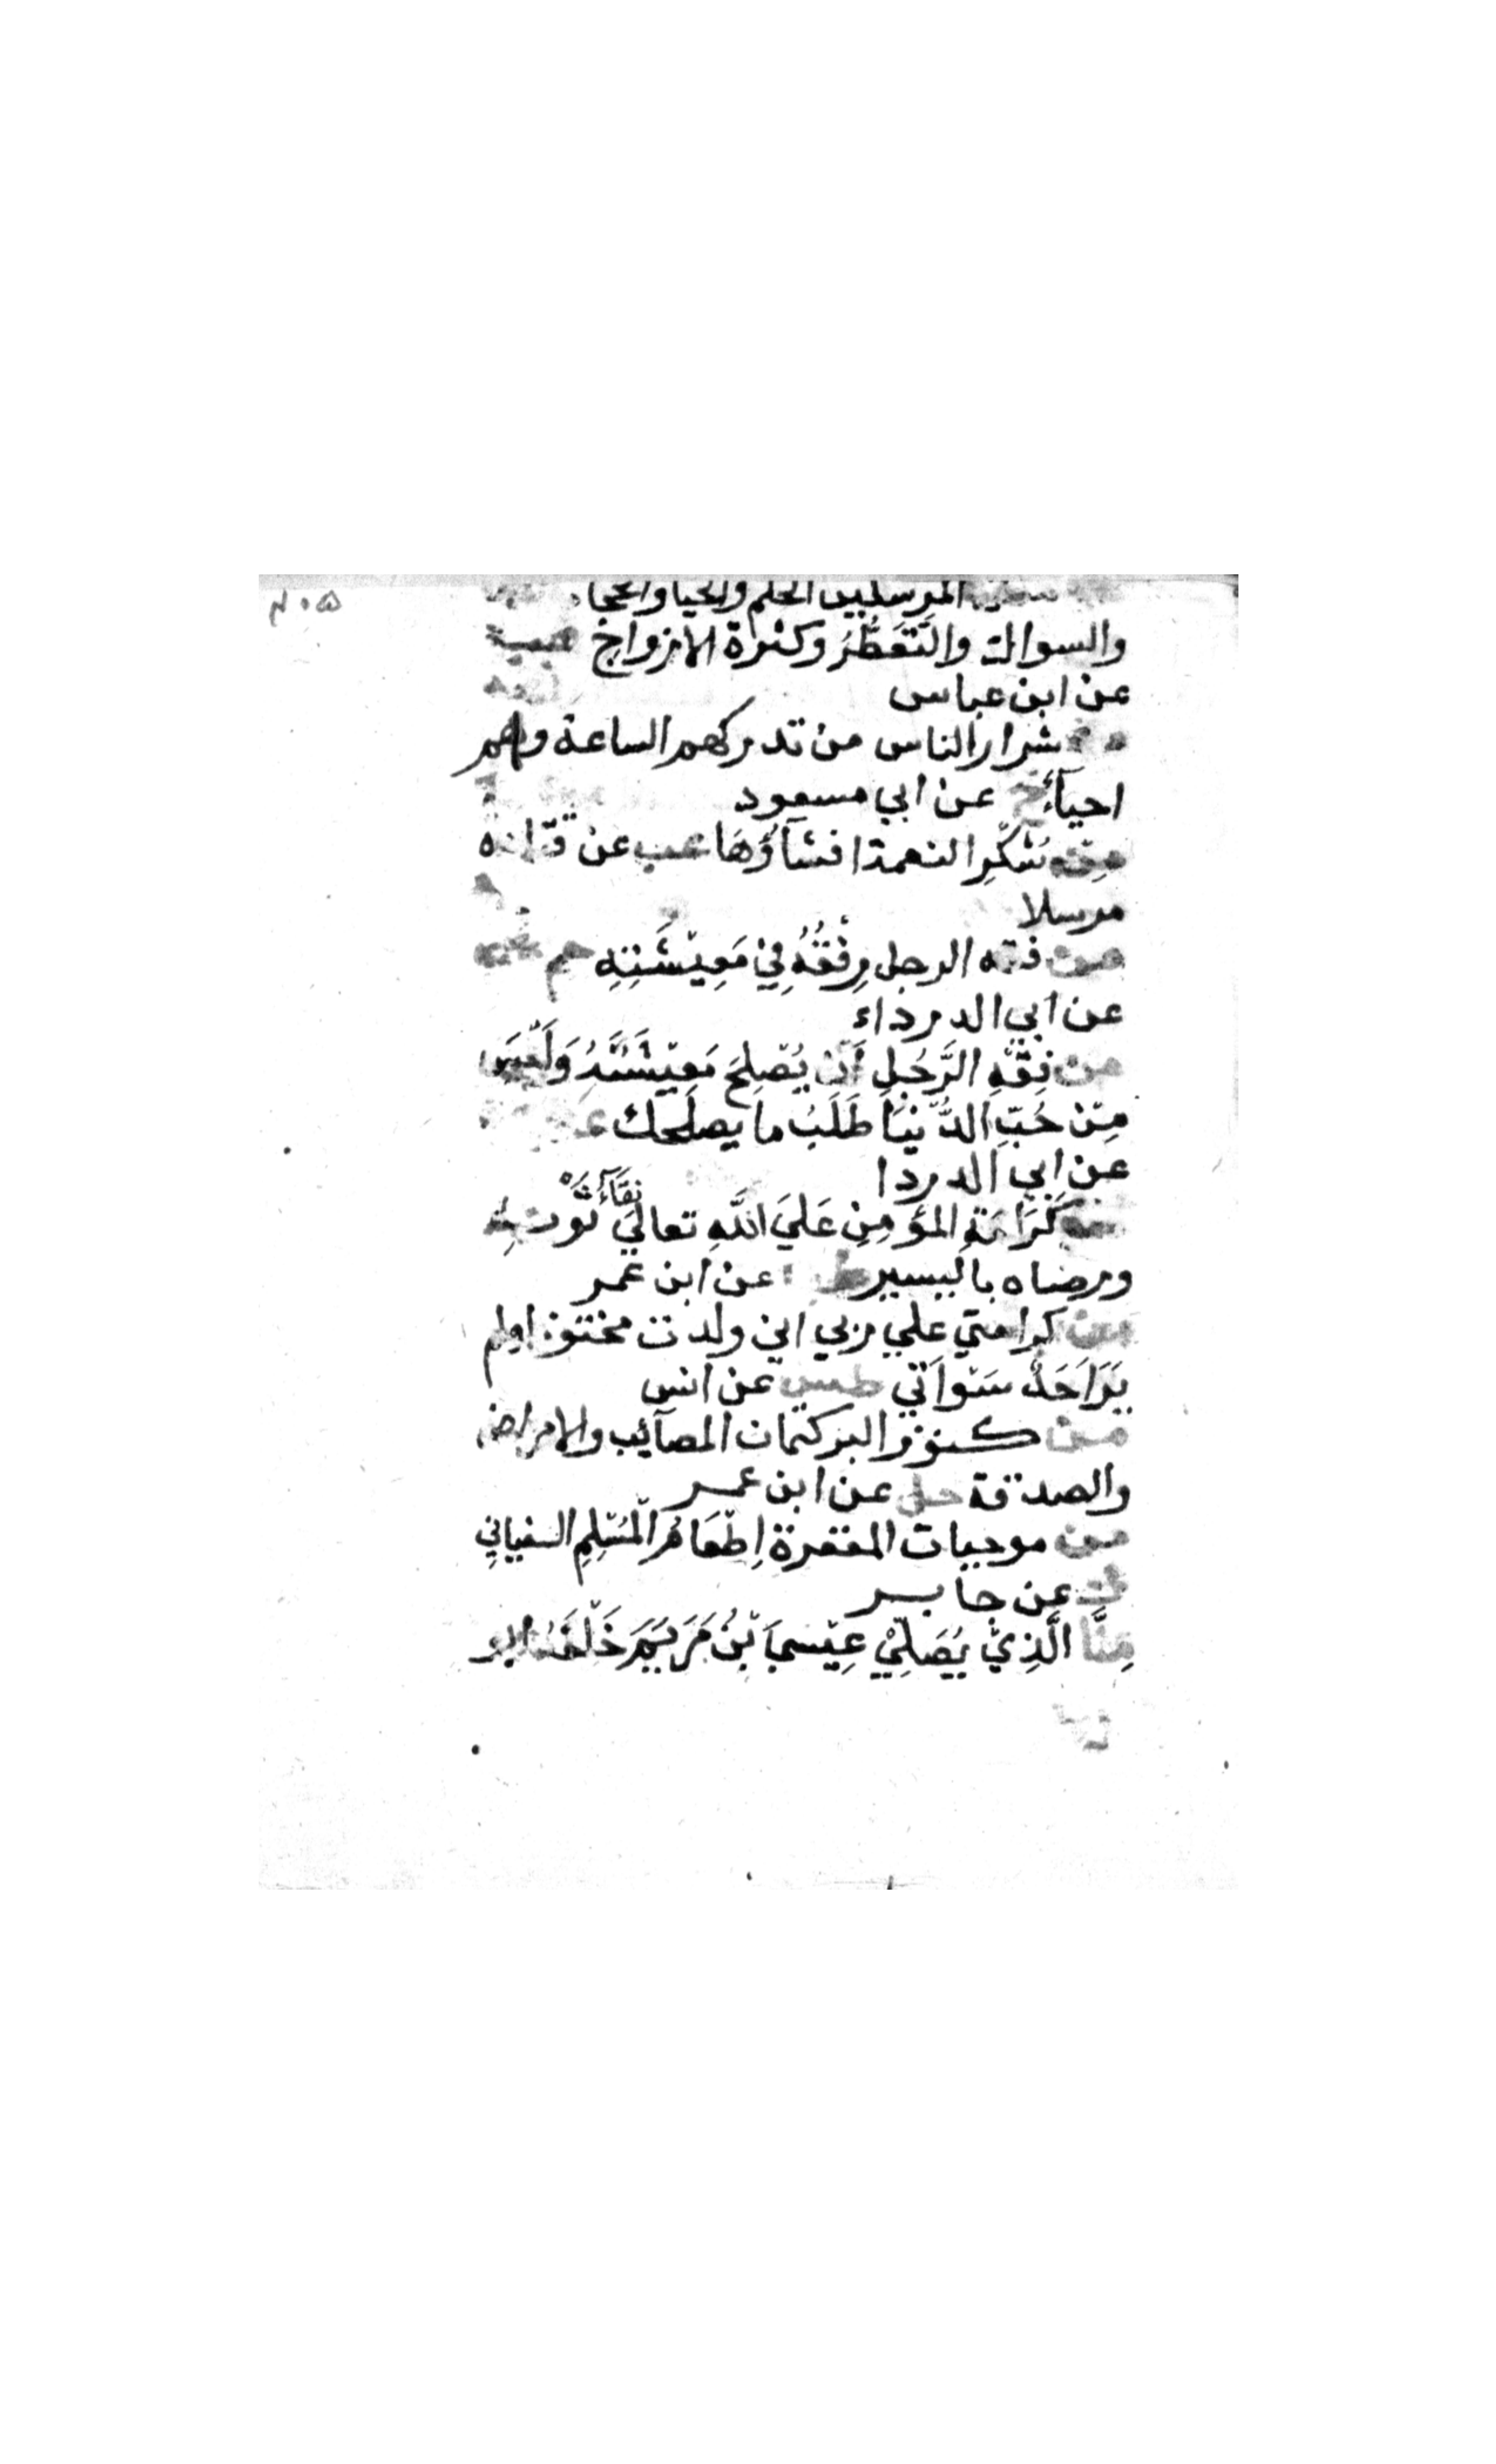 المرسلين الحلم والحيا والحجا
والسواك والتَّعَطُّرُ وكثرة الازواج
عن ابن عباس
شرار الناس من تدركهم الساعة وهم
احيآء خ عن ابي مسعود
من شُكْرِ النعمة افشآؤُهَا عب عن قتادة
مرسلا
من فقه الرجل رِفْقُهُ فِي مَعِيْشَتِهِ حم
عن ابي الدرداء
من فِقْهِ الرَّجُلِ أَنْ يُصْلِحَ مَعِيْشَتَهُ وَلَيْسَ
مِنْ حُبِّ الدُّنْيَا طَلَبُ ما يصلحك
عن ابي الدردا
كَرَامَةِ المؤمِنِ عَلَيَ اللَّهِ تعالي نَقَآءُ ثَوْبِهِ
ورضاه باليسير طب عن ابن عمر
من كرامتي علي ربي اني ولدت مختونا ولم
يَرَ اَحَدٌ سَوْاَتي طس عن انس
من كنوز البر كتمان المصآئب والامراض
والصدقة حل عن ابن عمر
من موجبات المغفرة اِطْعَامُ الْمُسْلِمِ السغبان
ك عن جابر
مِنَّا الَّذِيْ يُصَلِّيْ عِيْسيَ بْنُ مَرْيَمَ خَلْفَهُ ابو